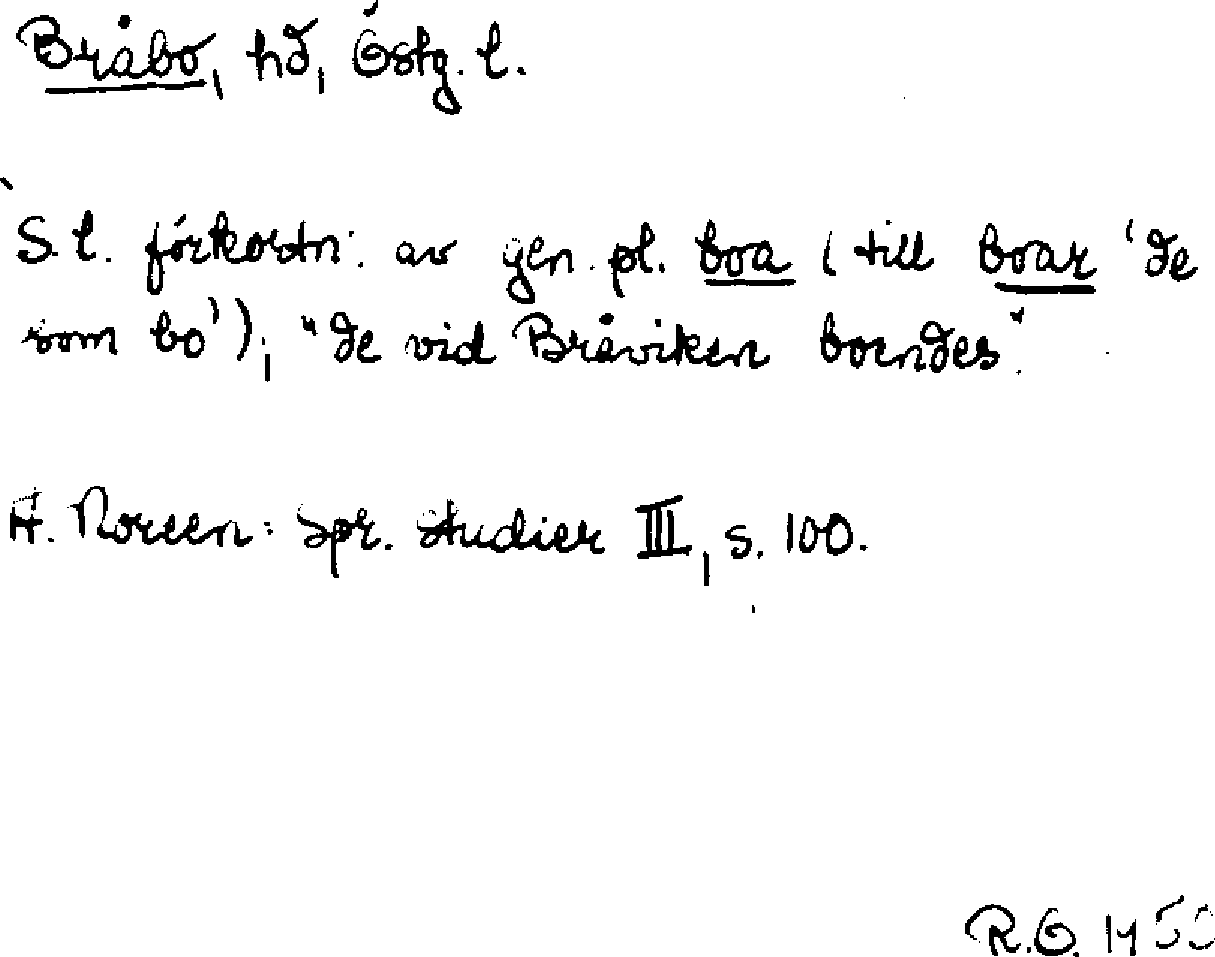 Bråbo, hd, Östg. l.
S. l. förkortn. av gen. pl. boa (till boar 'de
som bo'), "de vid Bråviken boendes".
A. Noreen: Spr. studier III, s. 100.
R.O. 1950